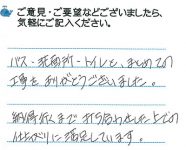 ご意見・ご要望などございましたら、
気軽にご記入ください。
バス・洗面所・トイレと、まとめての
工事をありがとうございました。
納得行くまで打ち合わせした上での
仕上がりに満足しています。